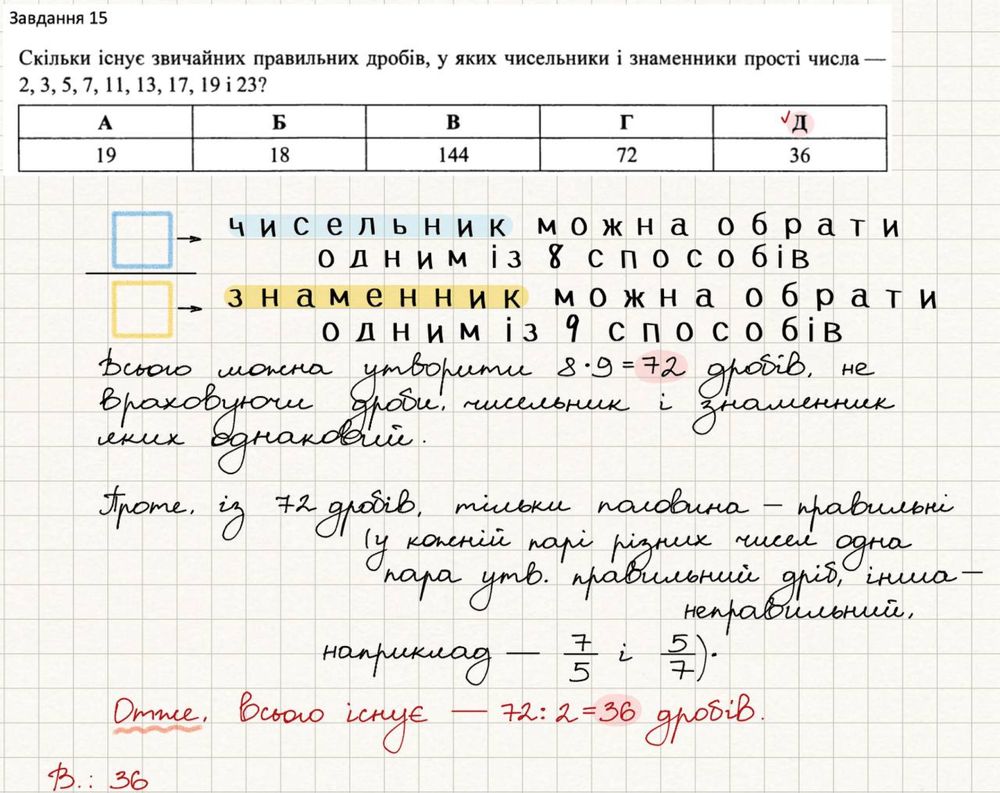 Завдання 15
Скільки існує звичайних правильних дробів, у яких чисельники і знаменники прості числа —
2, 3, 5, 7, 11, 13, 17, 19 і 23?
А Б В Г ✓Д
19 18 144 72 36
→ чисельник можна обрати
одним із 8 способів
→ знаменник можна обрати
одним із 9 способів
Всього можна утворити 8·9=72 дробів, не
враховуючи дроби, чисельник і знаменник
яких однаковий.
Проте, із 72 дробів, тільки половина — правильні
(у кожній парі різних чисел одна
пара утв. правильний дріб, інша —
неправильний,
наприклад — 7/5 і 5/7).
Отже, всього існує — 72:2=36 дробів.
В.: 36